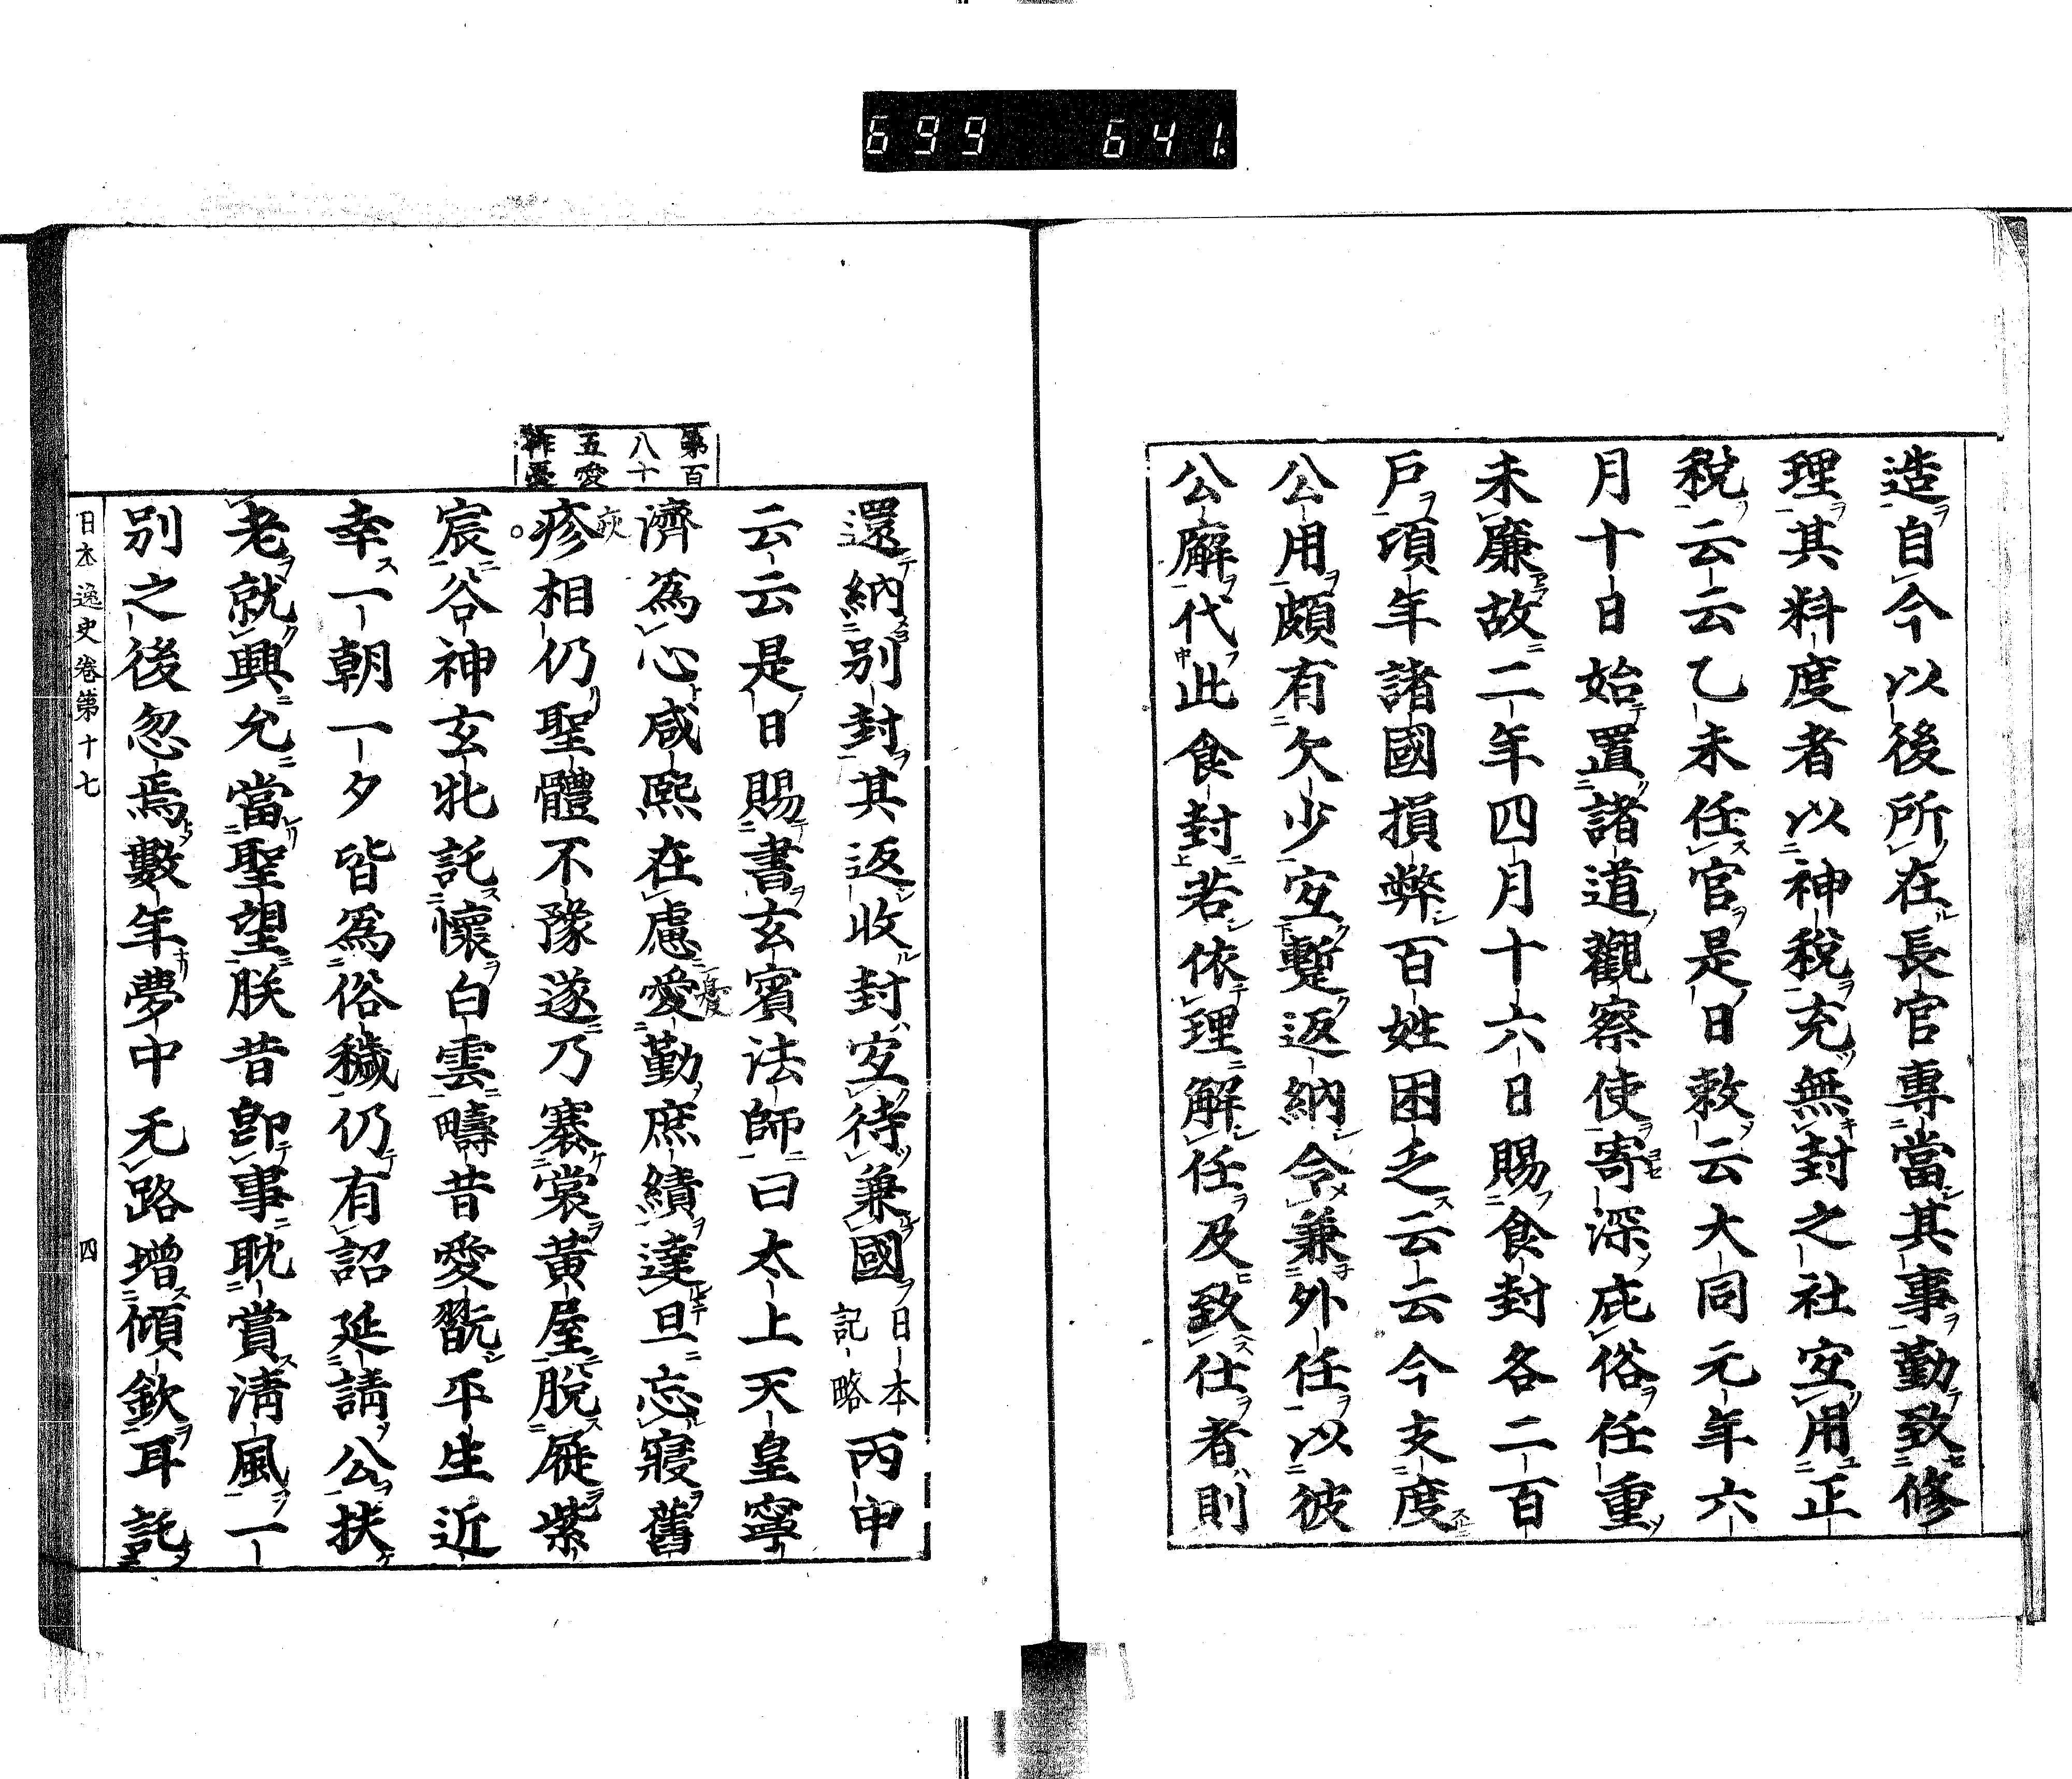 699 641
造自今以後所在長官專當其事勤致修
理其料度者以神稅充無封之社宐用正
稅云云乙未任官是日敕云大同元年六
月十日始置諸道觀察使寄深庇俗任重
未廉故二年四月十六日賜食封各二百
戶項年諸國損弊百姓困乏云云今支度
公用頗有欠少宐暫返納令兼外任以彼
公廨代此食封若依理解任及致仕者則
還納別封其返收封宐待兼國日本記略丙申
云云是日賜書玄賓法師曰太上天皇寧
濟爲心咸熙在慮愛勤庶績達旦忘寢舊
疹相仍聖體不豫遂乃褰裳黃屋脫屣紫
宸谷神玄牝託懷白雲疇昔愛翫平生近
幸一朝一夕皆爲俗穢仍有詔延請公扶
老就輿允當聖望朕昔卽事耽賞淸風一
別之後忽焉數年夢中无路增傾欽耳託
第百
八十
五愛
作憂
日本逸史卷第十七 四